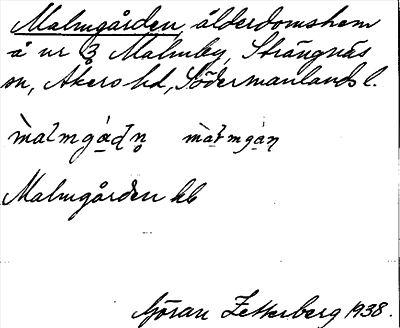 Malmgården, ålderdomshem
å nr 3 Malmby, Strängnäs
sn, Åkers hd, Södermanlands l.
Malmgården hb
Göran Zetterberg 1938.